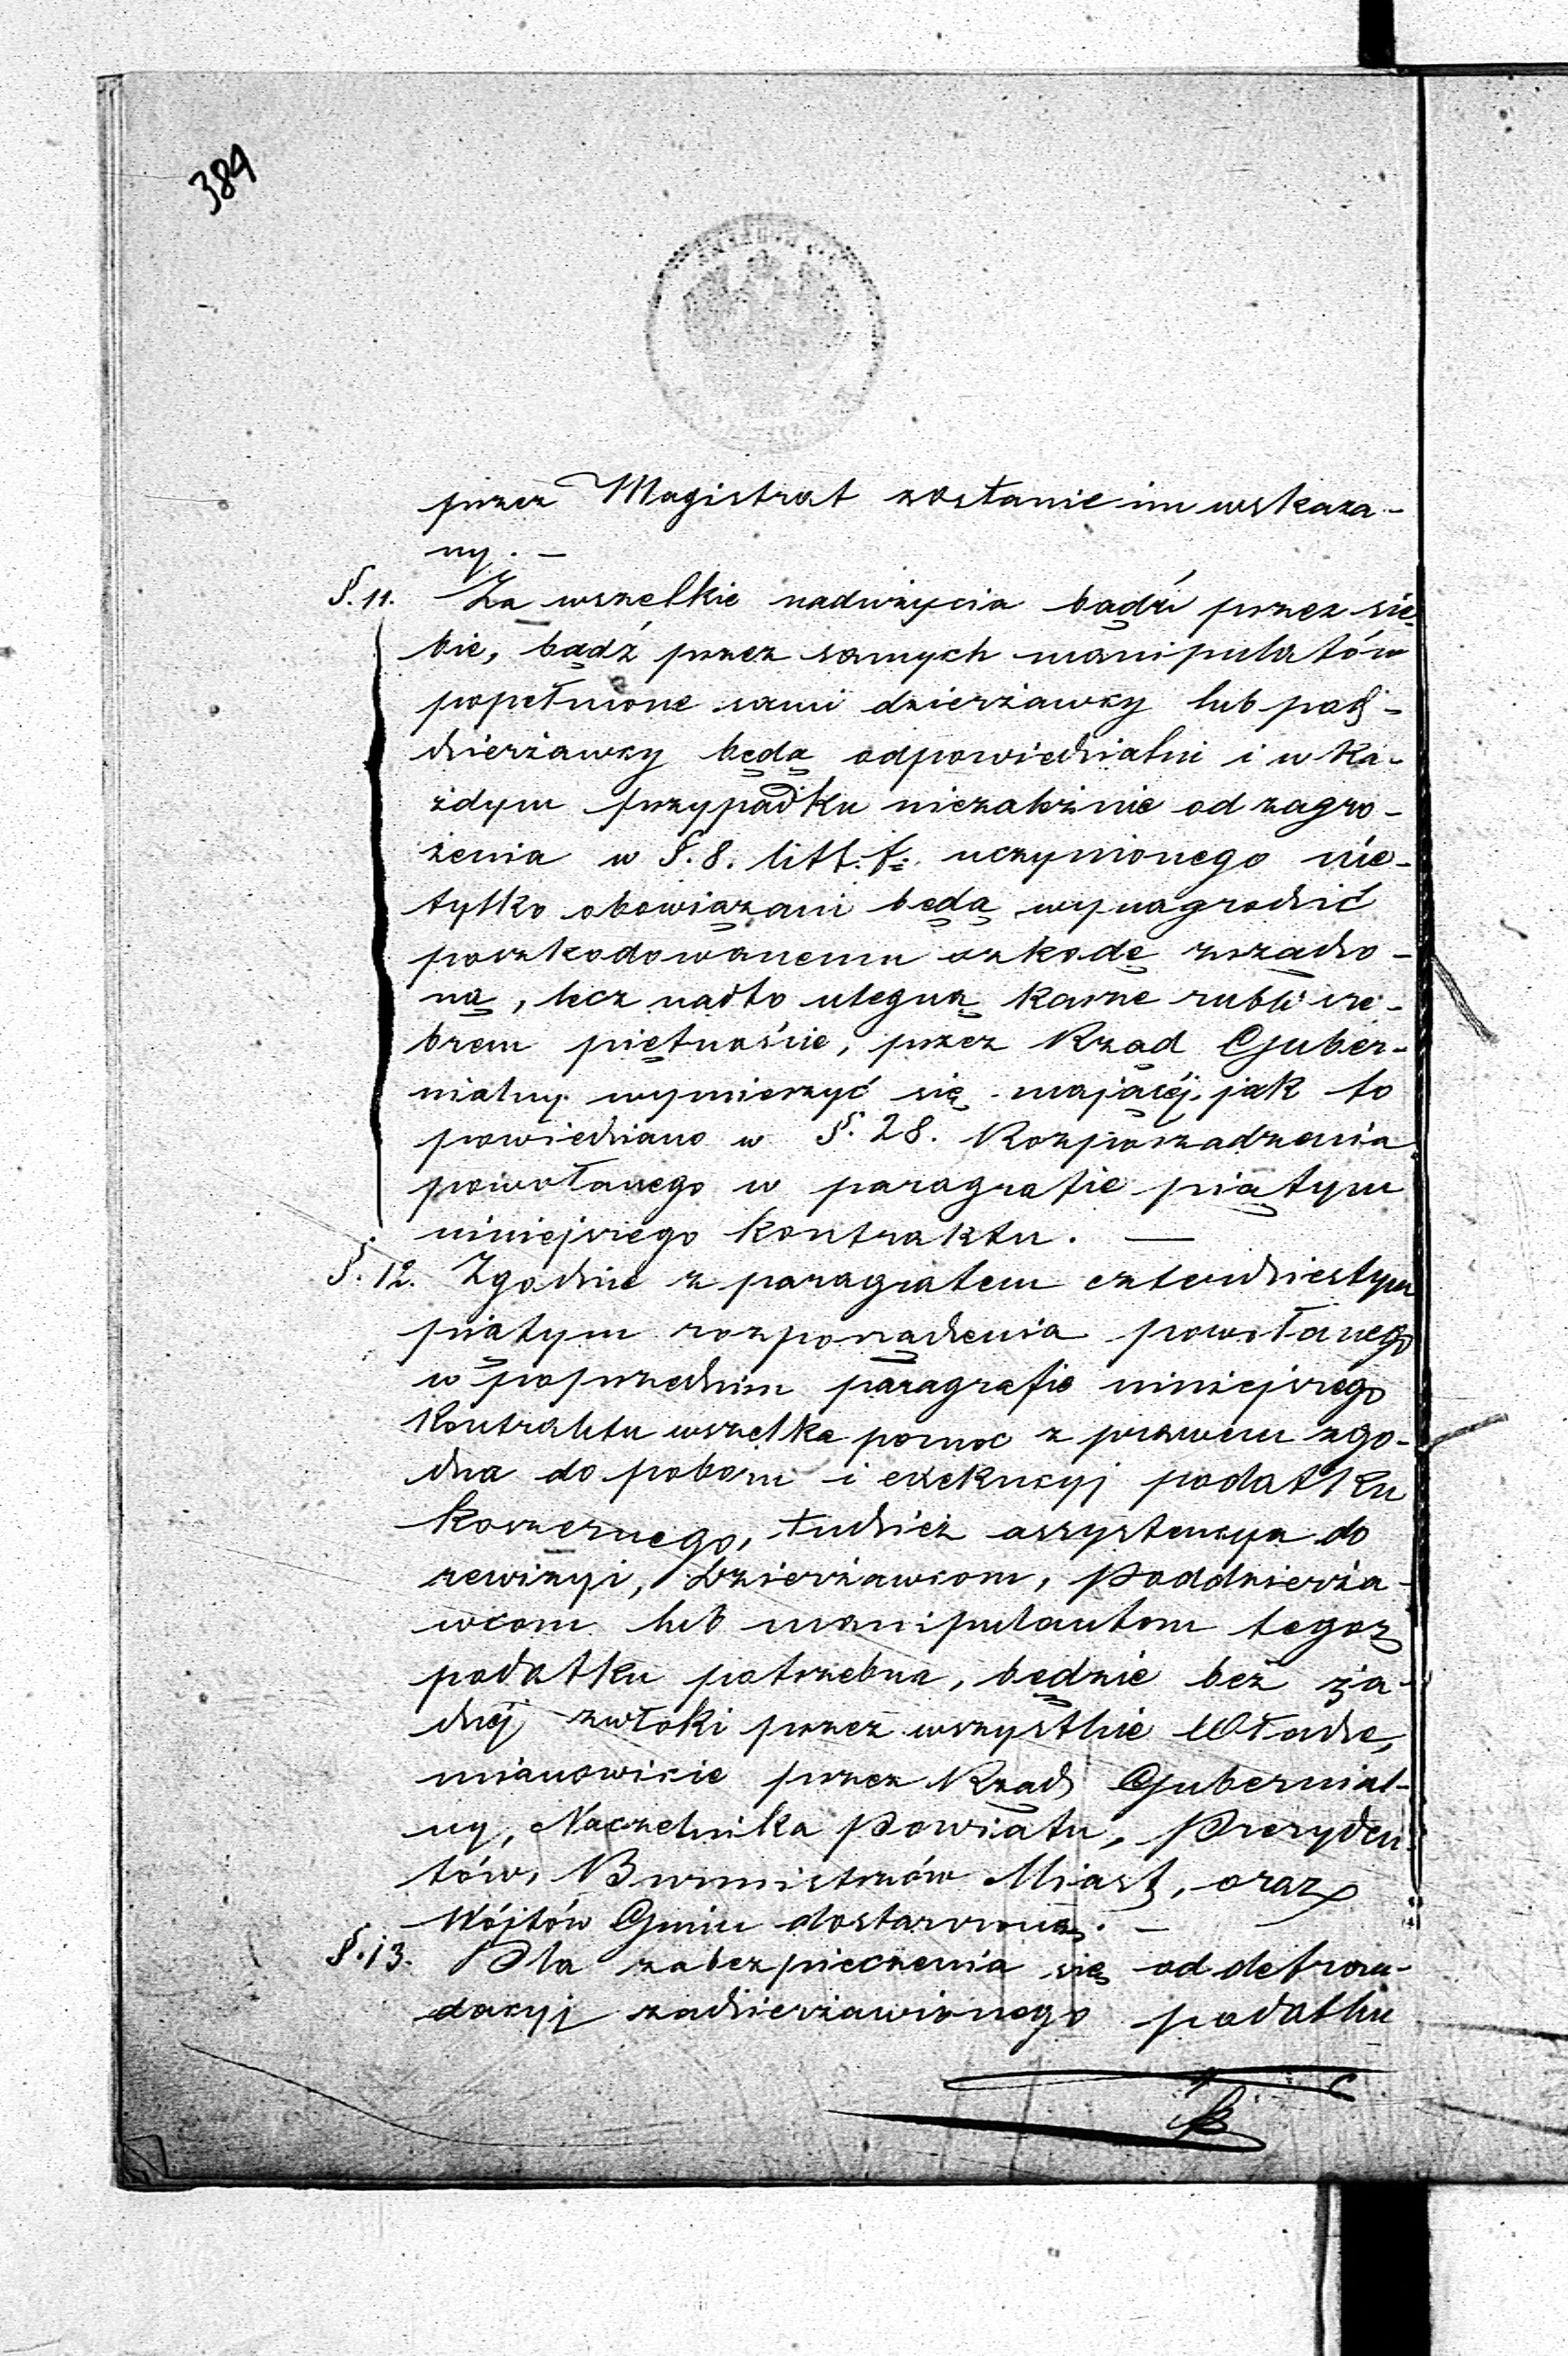 384
przez Magistrat zostanie im wskaza-
ny. —
§. 11. Za wszelkie nadużycia bądź przez sie-
bie, bądź przez samych manipulatów
popełnione sami dzierżawcy lub pod-
dzierżawcy będą odpowiedzialni i w ka-
żdym przypadku niezależnie od zagro-
żenia w §. 8. litt. f. uczynionego nie-
tylko obowiązani będą wynagrodzić
poszkodowanemu szkodę zrządzo-
ną, lecz nadto ulegną karze rubli sre-
brem piętnaście, przez Rząd Guber-
nialny wymierzyć się mającéj, jak to
powiedziano w §. 28. Rozporządzenia
powołanego w paragrafie piątym
niniejszego kontraktu. —
§. 12. Zgodnie z paragrafem czterdziestym
piątym rozporządzenia powołanego
w poprzednim paragrafie niniejszego
Kontraktu wszelka pomoc z prawem zgo-
dna do poboru i exekucyj podatku
koszernego, tudzież assystencya do
rewizyi, Dzierżawcom, Poddzierża-
wcom lub manipulantom tegoż
podatku potrzebna, będzie bez ża-
dnej zwłoki przez wszystkie Władze,
mianowicie przez Rząd Gubernial-
ny, Naczelnika Powiatu, Prezyden-
tów, Burmistrzów Miast, oraz
Wójtów Gmin dostarczoną. —
§. 13. Dla zabezpieczenia się od defrau-
dacyj zadzierżawionego podatku